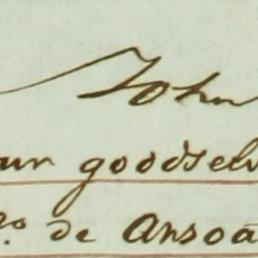 John
un goodsel
ro. de Ansoa